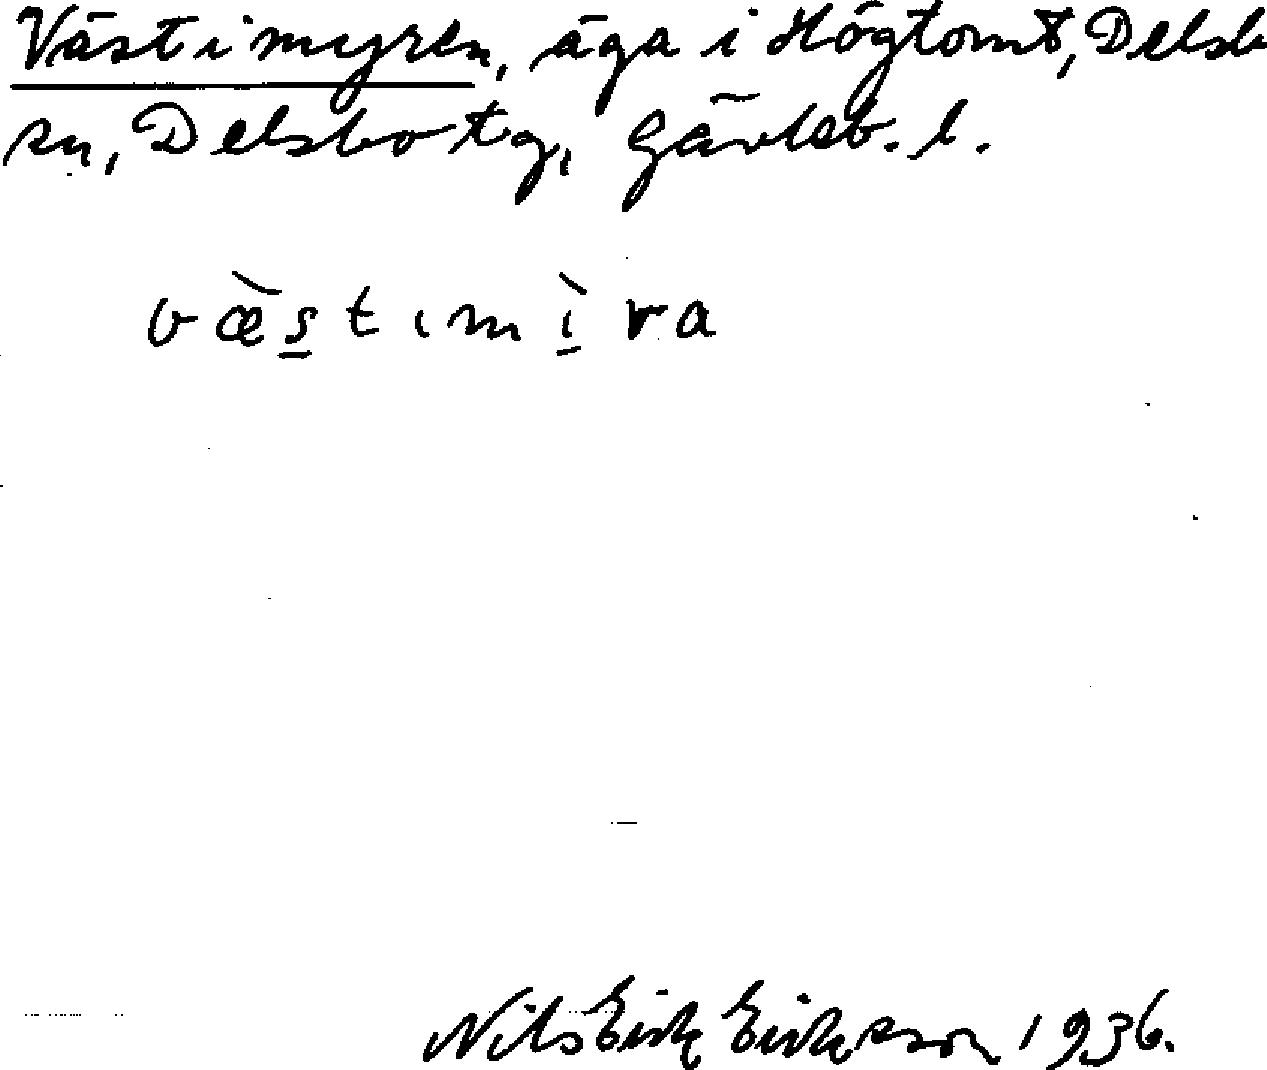 Västimyren, äga i Högtomt, Delsb
sn, Delsbo tg, Gävleb. l.
væ̀s̲tımì̲ra
Nils Erik Eriksson 1936.